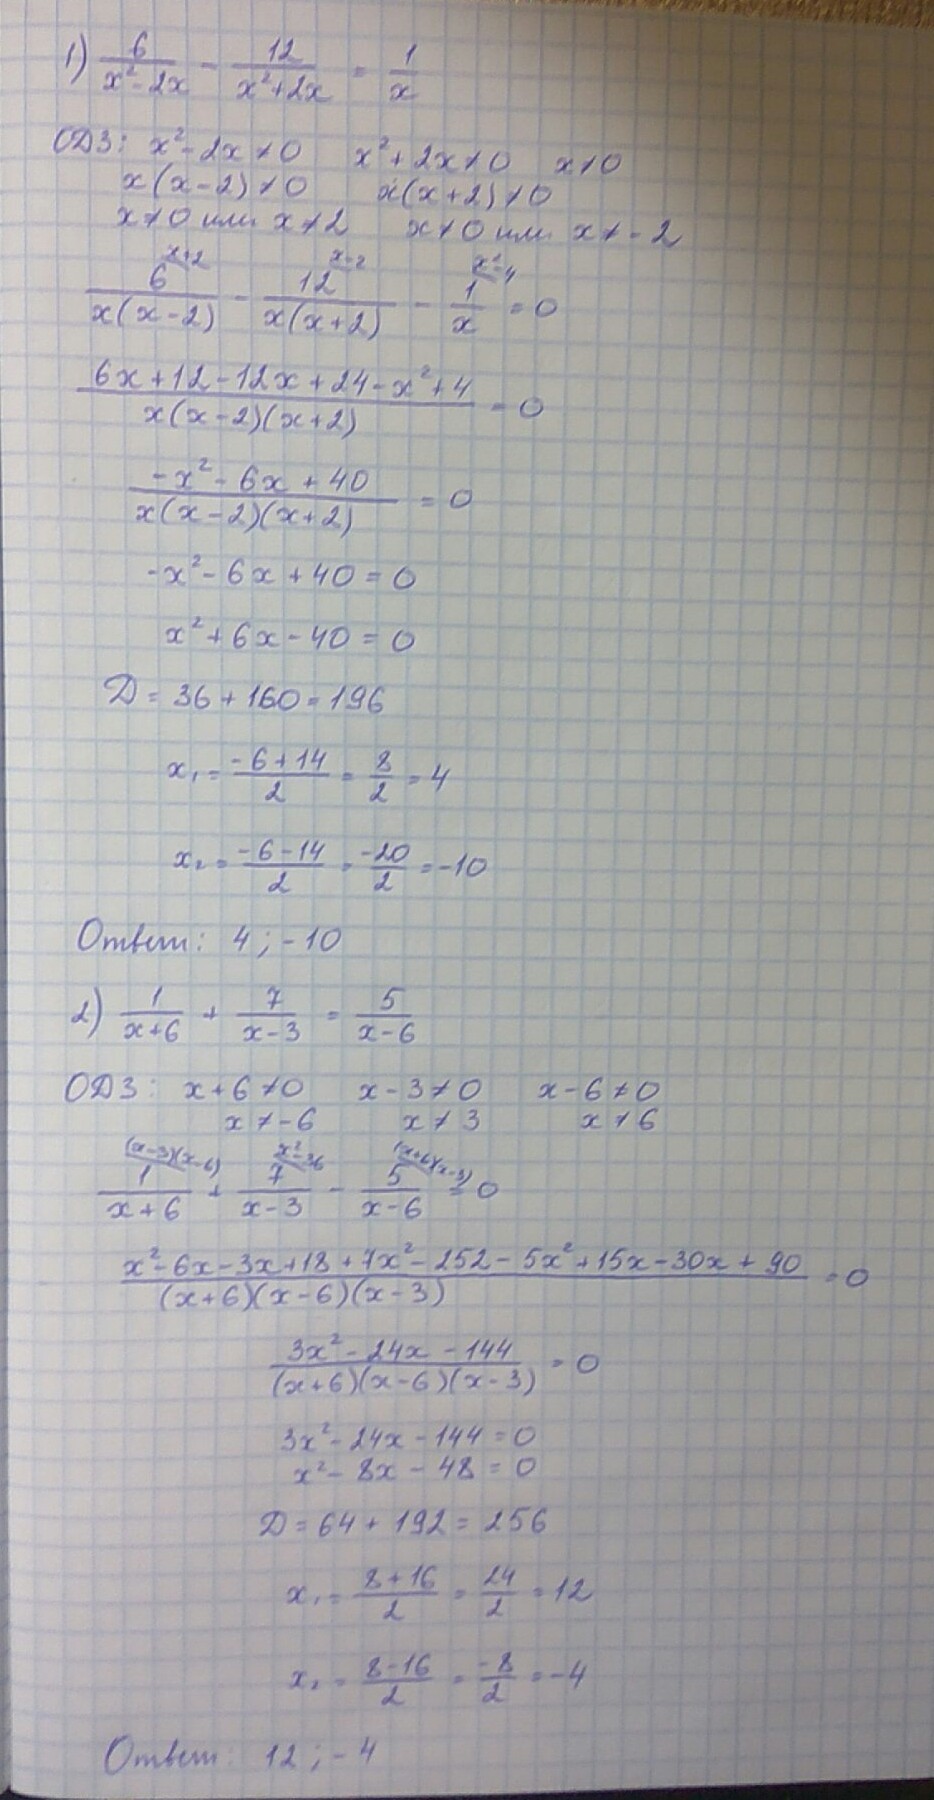 1) 6/(x²-2x) - 12/(x²+2x) = 1/x
ОДЗ: x²-2x≠0 x²+2x≠0 x≠0
x(x-2)≠0 x(x+2)≠0
x≠0 или x≠2 x≠0 или x≠-2
x+2 x-2 x²-4
6/(x(x-2)) - 12/(x(x+2)) - 1/x = 0
(6x+12-12x+24-x²+4)/(x(x-2)(x+2)) = 0
(-x²-6x+40)/(x(x-2)(x+2)) = 0
-x²-6x+40=0
x²+6x-40=0
D=36+160=196
x₁=(-6+14)/2=8/2=4
x₂=(-6-14)/2=-20/2=-10
Ответ: 4; -10
2) 1/(x+6) + 7/(x-3) = 5/(x-6)
ОДЗ: x+6≠0 x-3≠0 x-6≠0
x≠-6 x≠3 x≠6
(x-3)(x-6) x²-36 (x+6)(x-3)
1/(x+6) + 7/(x-3) - 5/(x-6) = 0
(x²-6x-3x+18+7x²-252-5x²+15x-30x+90)/((x+6)(x-6)(x-3)) = 0
(3x²-24x-144)/((x+6)(x-6)(x-3)) = 0
3x²-24x-144=0
x²-8x-48=0
D=64+192=256
x₁=(8+16)/2=24/2=12
x₂=(8-16)/2=-8/2=-4
Ответ: 12; -4